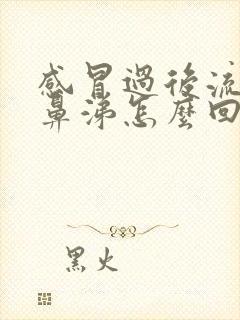 感冒過後流
鼻涕怎麼回
黑火